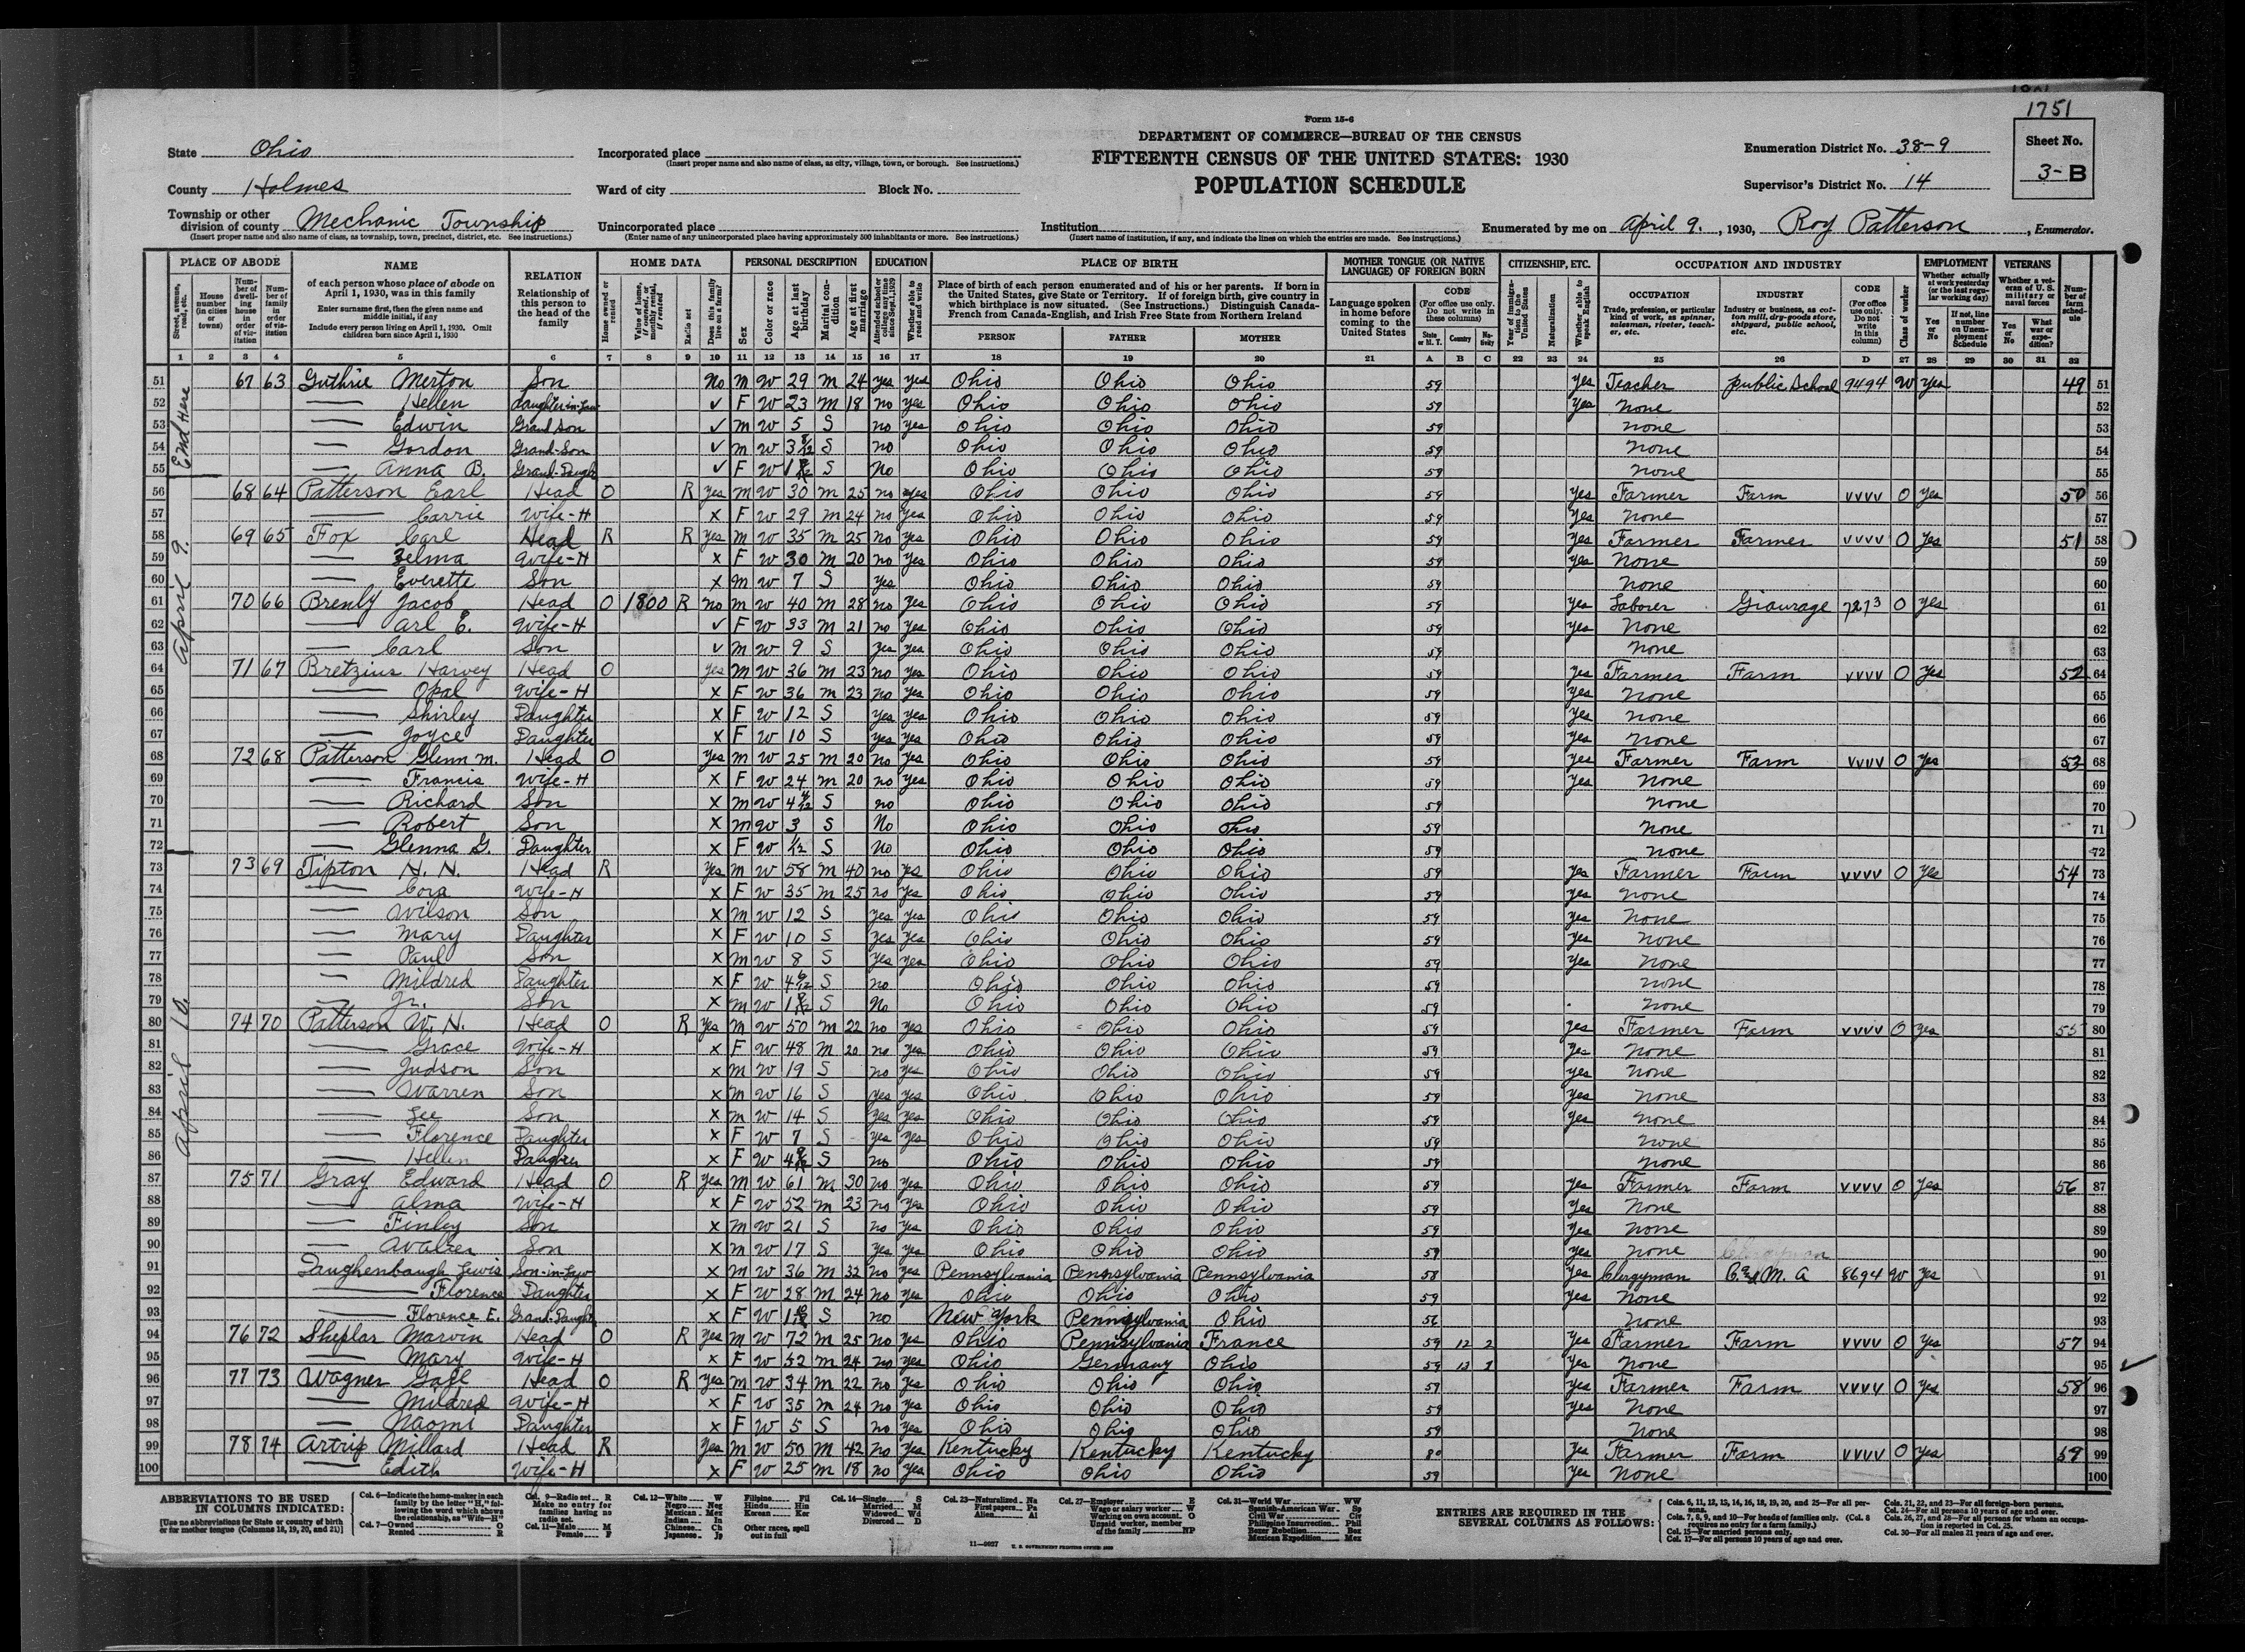 1751
Form 15-6
DEPARTMENT OF COMMERCE—BUREAU OF THE CENSUS
FIFTEENTH CENSUS OF THE UNITED STATES: 1930
POPULATION SCHEDULE
State Ohio
County Holmes
Township or other division of county Mechanic Township
(Insert proper name and also name of class, as township, town, precinct, district, etc. See instructions.)
Incorporated place
(Insert proper name and also name of class, as city, village, town, or borough. See instructions.)
Ward of city Block No.
Unincorporated place
(Enter name of any unincorporated place having approximately 500 inhabitants or more. See instructions.)
Institution
(Insert name of institution, if any, and indicate the lines on which the entries are made. See instructions.)
Enumeration District No. 38-9
Supervisor's District No. 14
Sheet No. 3-B
Enumerated by me on April 9, 1930, Roy Patterson, Enumerator.
PLACE OF ABODE NAME RELATION HOME DATA PERSONAL DESCRIPTION EDUCATION PLACE OF BIRTH MOTHER TONGUE (OR NATIVE LANGUAGE) OF FOREIGN BORN CITIZENSHIP, ETC. OCCUPATION AND INDUSTRY EMPLOYMENT VETERANS
End Here
April 9.
April 10.
51 67 63 Guthrie Merton Son No M W 29 M 24 yes yes Ohio Ohio Ohio 59 Yes Teacher public School 9494 W Yes 49 51
52 Hellen daughter-in-law ✓ F W 23 M 18 no yes Ohio Ohio Ohio 59 Yes None 52
53 Edwin Grand Son ✓ M W 5 S no yes Ohio Ohio Ohio 59 None 53
54 Gordon Grand-Son ✓ M W 3 8/12 S no Ohio Ohio Ohio 59 None 54
55 Anna B. Grand-Daugh ✓ F W S No Ohio Ohio Ohio 59 None 55
56 68 64 Patterson Earl Head O R yes M W 30 M 25 no yes Ohio Ohio Ohio 59 Yes Farmer Farm VVVV O Yes 50 56
57 Carrie Wife-H X F W 29 M 24 no Yes Ohio Ohio Ohio 59 Yes None 57
58 69 65 Fox Carl Head R R Yes M W 35 M 25 No Yes Ohio Ohio Ohio 59 Yes Farmer Farmer VVVV O Yes 51 58
59 Zelma Wife-H X F W 30 M 20 no Yes Ohio Ohio Ohio 59 Yes None 59
60 Everette Son X M W 7 S Yes Ohio Ohio Ohio 59 None 60
61 70 66 Brenly Jacob Head O 1800 R no M W 40 M 28 no Yes Ohio Ohio Ohio 59 Yes Laborer Giaurage 7273 O Yes 61
62 Arl E. Wife-H ✓ F W 33 M 21 no Yes Ohio Ohio Ohio 59 Yes None 62
63 Carl Son ✓ M W 9 S Yes Yes Ohio Ohio Ohio 59 None 63
64 71 67 Bretzius Harvey Head O Yes M W 36 M 23 no Yes Ohio Ohio Ohio 59 Yes Farmer Farm VVVV O Yes 52 64
65 Opal Wife-H X F W 36 M 23 No Yes Ohio Ohio Ohio 59 Yes None 65
66 Shirley Daughter X F W 12 S Yes Yes Ohio Ohio Ohio 59 Yes None 66
67 Joyce Daughter X F W 10 S Yes Yes Ohio Ohio Ohio 59 Yes None 67
68 72 68 Patterson Glenn M. Head O Yes M W 25 M 20 No Yes Ohio Ohio Ohio 59 Yes Farmer Farm VVVV O Yes 53 68
69 Francis Wife-H X F W 24 M 20 no Yes Ohio Ohio Ohio 59 Yes None 69
70 Richard Son X M W 4 S no Ohio Ohio Ohio 59 None 70
71 Robert Son X M W 3 S No Ohio Ohio Ohio 59 None 71
72 Glenna G. Daughter X F W 1/12 S No Ohio Ohio Ohio 59 None 72
73 73 69 Tipton N. N. Head R Yes M W 58 M 40 no Yes Ohio Ohio Ohio 59 Yes Farmer Farm VVVV O Yes 54 73
74 Cora Wife-H X F W 35 M 25 no Yes Ohio Ohio Ohio 59 Yes None 74
75 Wilson Son X M W 12 S Yes Yes Ohio Ohio Ohio 59 Yes None 75
76 Mary Daughter X F W 10 S Yes Yes Ohio Ohio Ohio 59 Yes None 76
77 Paul Son X M W 8 S Yes Yes Ohio Ohio Ohio 59 Yes None 77
78 Mildred Daughter X F W 4 6/12 S no Ohio Ohio Ohio 59 None 78
79 Jr. Son X M W S No Ohio Ohio Ohio 59 None 79
80 74 70 Patterson W. N. Head O R Yes M W 50 M 22 no Yes Ohio Ohio Ohio 59 Yes Farmer Farm VVVV O Yes 55 80
81 Grace Wife-H X F W 48 M 20 no Yes Ohio Ohio Ohio 59 Yes None 81
82 Judson Son X M W 19 S no Yes Ohio Ohio Ohio 59 Yes None 82
83 Warren Son X M W 16 S Yes Yes Ohio Ohio Ohio 59 Yes None 83
84 Lee Son X M W 14 S Yes Yes Ohio Ohio Ohio 59 Yes None 84
85 Florence Daughter X F W 7 S Yes Yes Ohio Ohio Ohio 59 None 85
86 Hellen Daughter X F W S no Ohio Ohio Ohio 59 None 86
87 75 71 Gray Edward Head O R Yes M W 61 M 30 No Yes Ohio Ohio Ohio 59 Yes Farmer Farm VVVV O Yes 56 87
88 Alma Wife-H X F W 52 M 23 no Yes Ohio Ohio Ohio 59 Yes None 88
89 Finley Son X M W 21 S no Yes Ohio Ohio Ohio 59 Yes None 89
90 Walter Son X M W 17 S Yes Yes Ohio Ohio Ohio 59 Yes None 90
91 Daughenbaugh Lewis Son-in-Law X M W 36 M 32 no Yes Pennsylvania Pennsylvania Pennsylvania 58 Yes Clergyman C. and M. A 8694 W Yes 91
92 Florence Daughter X F W 28 M 24 no Yes Ohio Ohio Ohio 59 Yes None 92
93 Florence E. Grand-Daught X F W S no New York Pennsylvania Ohio 56 None 93
94 76 72 Sheplar Marvin Head O R Yes M W 72 M 25 no Yes Ohio Pennsylvania France 59 12 2 Yes Farmer Farm VVVV O Yes 57 94
95 Mary Wife-H X F W 52 M 24 no Yes Ohio Germany Ohio 59 13 1 Yes None 95
96 77 73 Wagner Gail Head O R Yes M W 34 M 22 no Yes Ohio Ohio Ohio 59 Yes Farmer Farm VVVV O Yes 58 96
97 Mildred Wife-H X F W 35 M 24 no Yes Ohio Ohio Ohio 59 Yes None 97
98 Naomi Daughter X F W 5 S no Yes Ohio Ohio Ohio 59 None 98
99 78 74 Artrip Millard Head R Yes M W 50 M 42 No Yes Kentucky Kentucky Kentucky 80 Yes Farmer Farm VVVV O Yes 59 99
100 Edith Wife-H X F W 25 M 18 no Yes Ohio Ohio Ohio 59 Yes None 100
ABBREVIATIONS TO BE USED IN COLUMNS INDICATED:
[Use no abbreviations for State or country of birth or for mother tongue (Columns 18, 19, 20, and 21)]
ENTRIES ARE REQUIRED IN THE SEVERAL COLUMNS AS FOLLOWS:
11—9027 U. S. GOVERNMENT PRINTING OFFICE